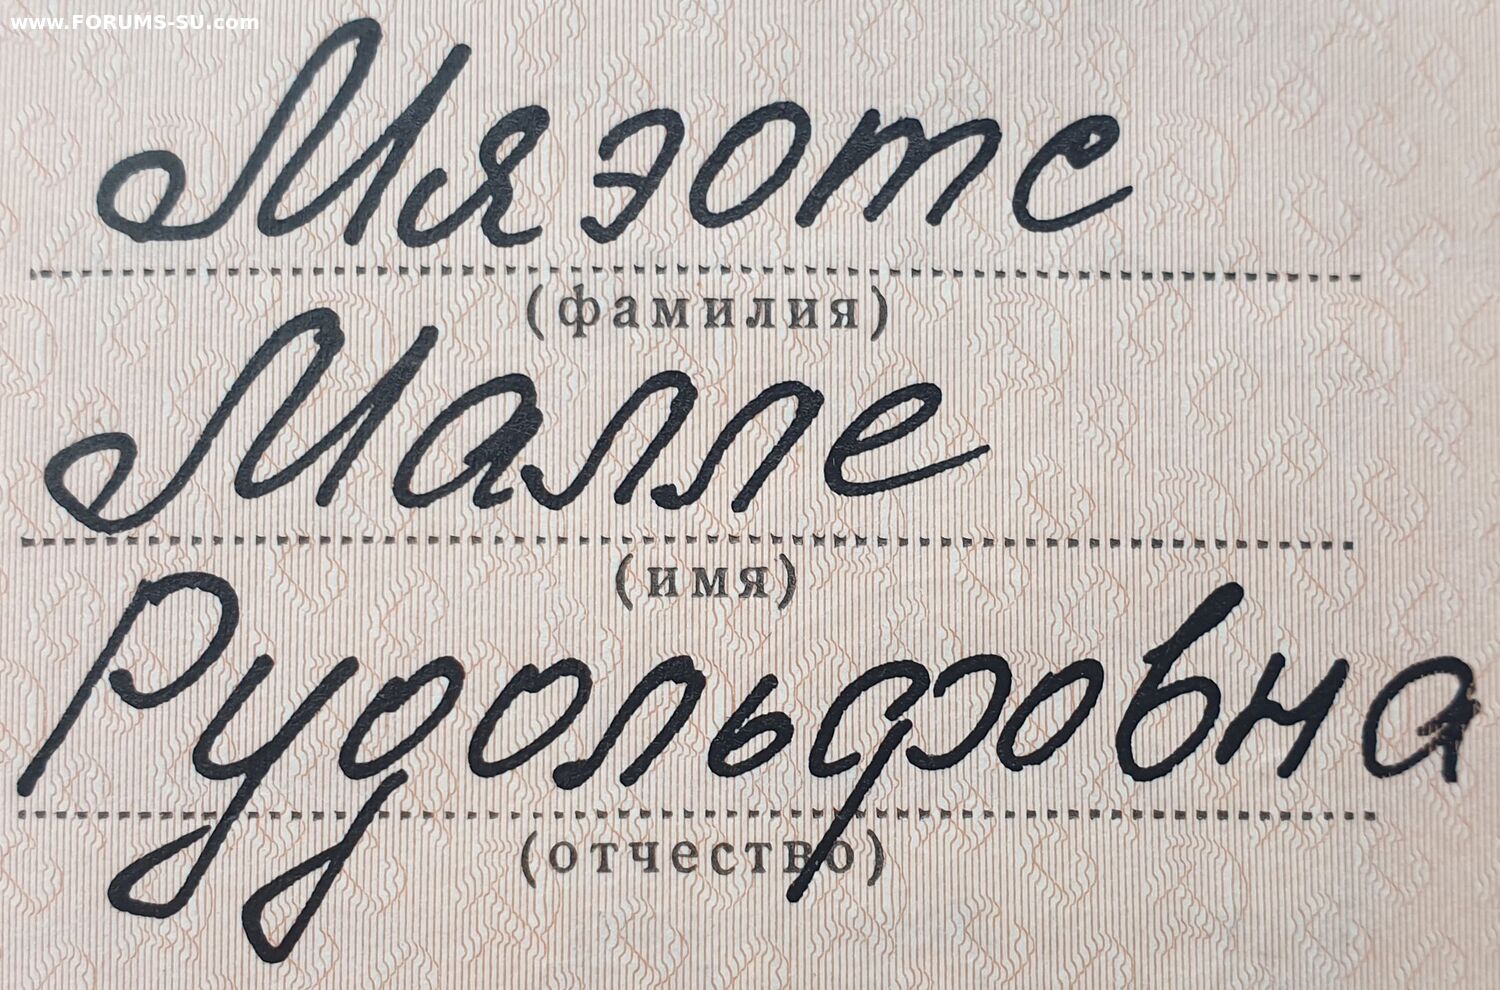 www.FORUMS-SU.com
Мяэотс
(фамилия)
Малле
(имя)
Рудольфовна
(отчество)